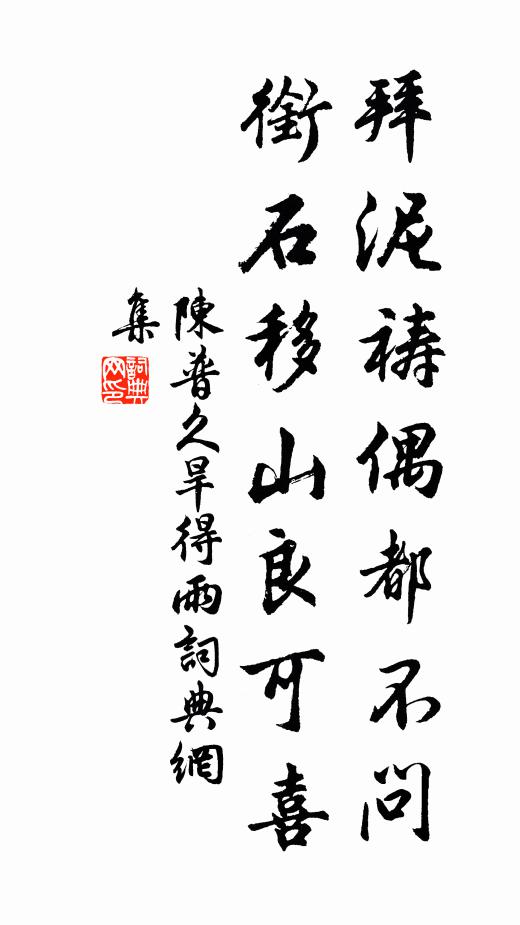 拜泥禱偶都不問
銜石移山良可喜
陳普久旱得雨詞典網
集
詞典
网印